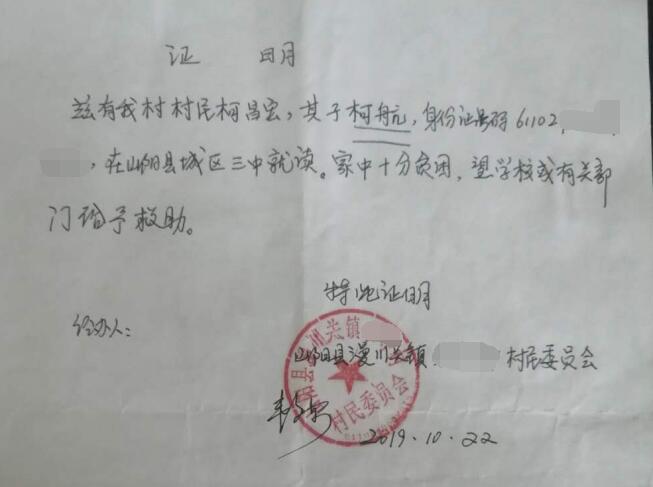 证 明
兹有我村村民柯昌宏，其子柯舟亢，身份证号码61102
，在山阳县城区三中就读。家中十分贫困，望学校或有关部
门给予救助。
特此证明
经办人：
山阳县漫川关镇 村民委员会
2019.10.22
川关镇
村民委员会